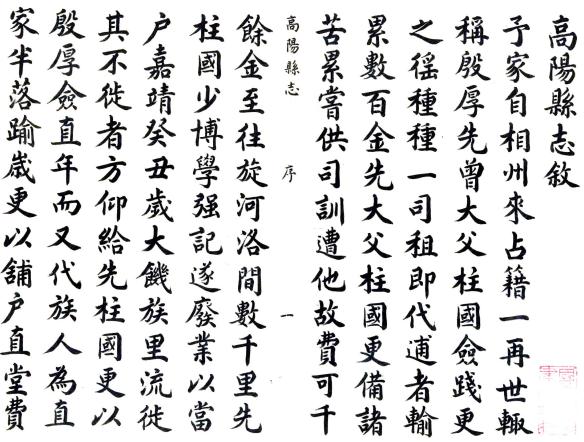 高陽縣志敘
予家自相州來占籍一再世輙
稱殷厚先曾大父柱國僉踐更
之徭種種一司租即代逋者輸
累數百金先大父柱國更備諸
苦累嘗供司訓遭他故費可千
高陽縣志 序 一
餘金至往旋河洛間數千里先
柱國少博學强記遂廢業以當
户嘉靖癸丑歲大饑族里流徙
其不徙者方仰給先柱國更以
殷厚僉直年而又代族人為直
家半落踰歲更以舖户直堂費